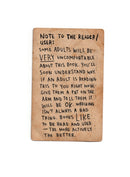 NOTE TO THE READER/
USER:
SOME ADULTS WILL BE
VERY UNCOMFORTABLE
ABOUT THIS BOOK. YOU'LL
SOON UNDERSTAND WHY.
IF AN ADULT IS READING
THIS TO YOU RIGHT NOW,
GIVE THEM A PAT ON THE
ARM AND TELL THEM IT
WILL BE OK. WRECKING
ISN'T ALWAYS A BAD
THING. BOOKS LIKE
TO BE READ AND USED
— THE MORE ACTIVELY
THE BETTER.